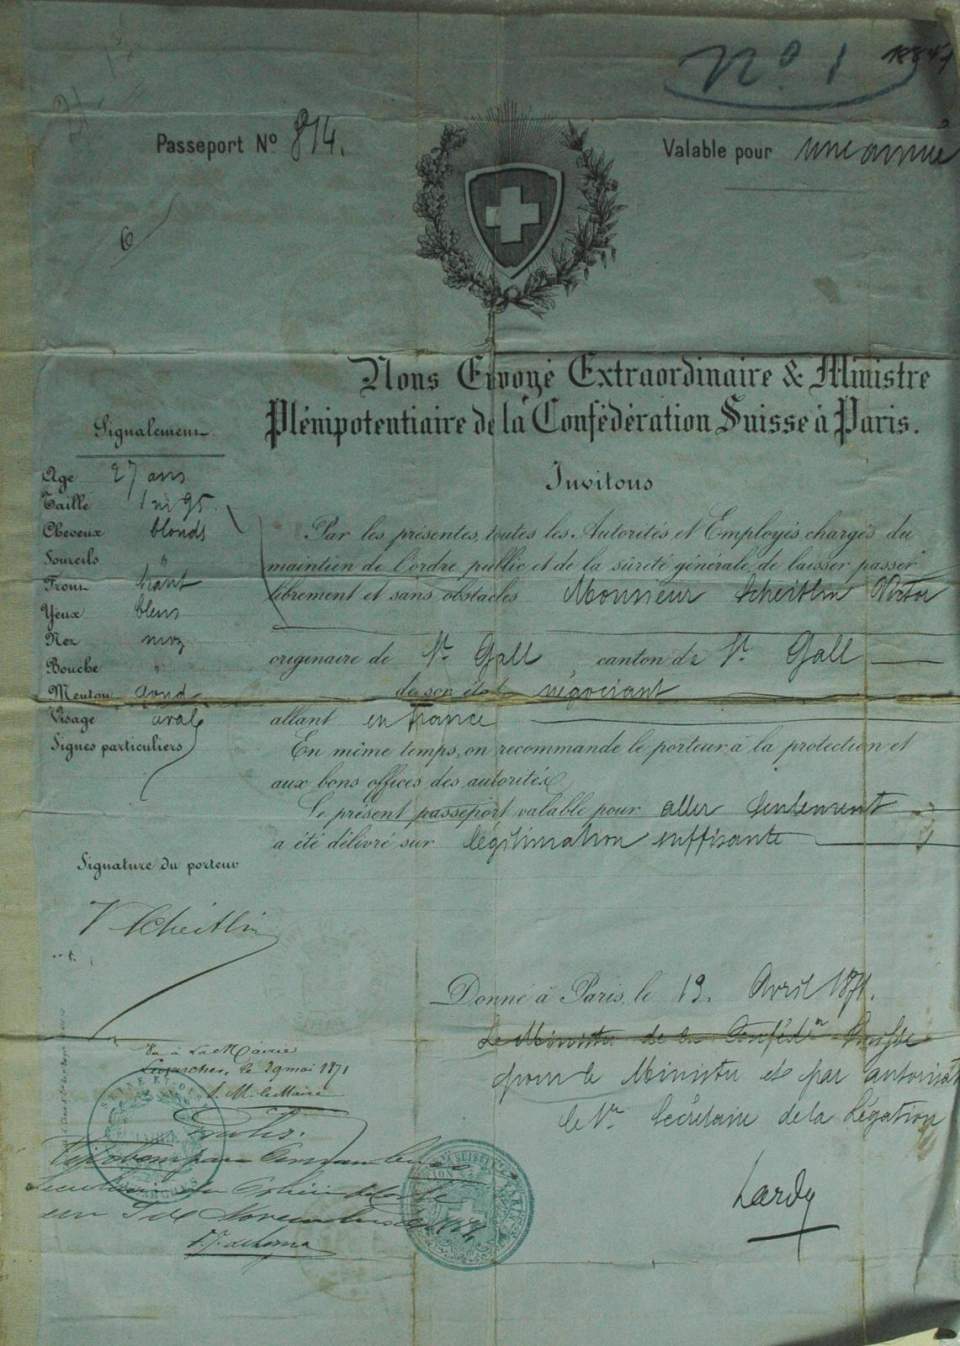 Nº 1
Passeport Nº 814.
Valable pour une année
6
Nous Envoyé Extraordinaire & Ministre
Plénipotentiaire de la Confédération Suisse à Paris.
Signalement
Age 27 ans
Taille 1 m 95
Cheveux blonds
Sourcils "
Front haut
Yeux bleus
Nez moy
Bouche "
Menton rond
Visage oval
Signes particuliers
Signature du porteur
V Scheitlin
Invitons
Par les présentes, toutes les Autorités et Employés chargés du
maintien de l'ordre public et de la sûreté générale, de laisser passer
librement et sans obstacles Monsieur Scheitlin Victor
originaire de St. Gall canton de St. Gall
de son état négociant
allant en france
En même temps, on recommande le porteur à la protection et
aux bons offices des autorités.
Le présent passeport valable pour aller seulement
a été délivré sur légitimation suffisante
Donné à Paris, le 19. Avril 1871.
Le Ministre de la Confédon Suisse
pour le Ministre et par autorisat
le Secrétaire de la Légation
Lardy
Vu à la Mairie
le 29 mai 1871
Le Maire